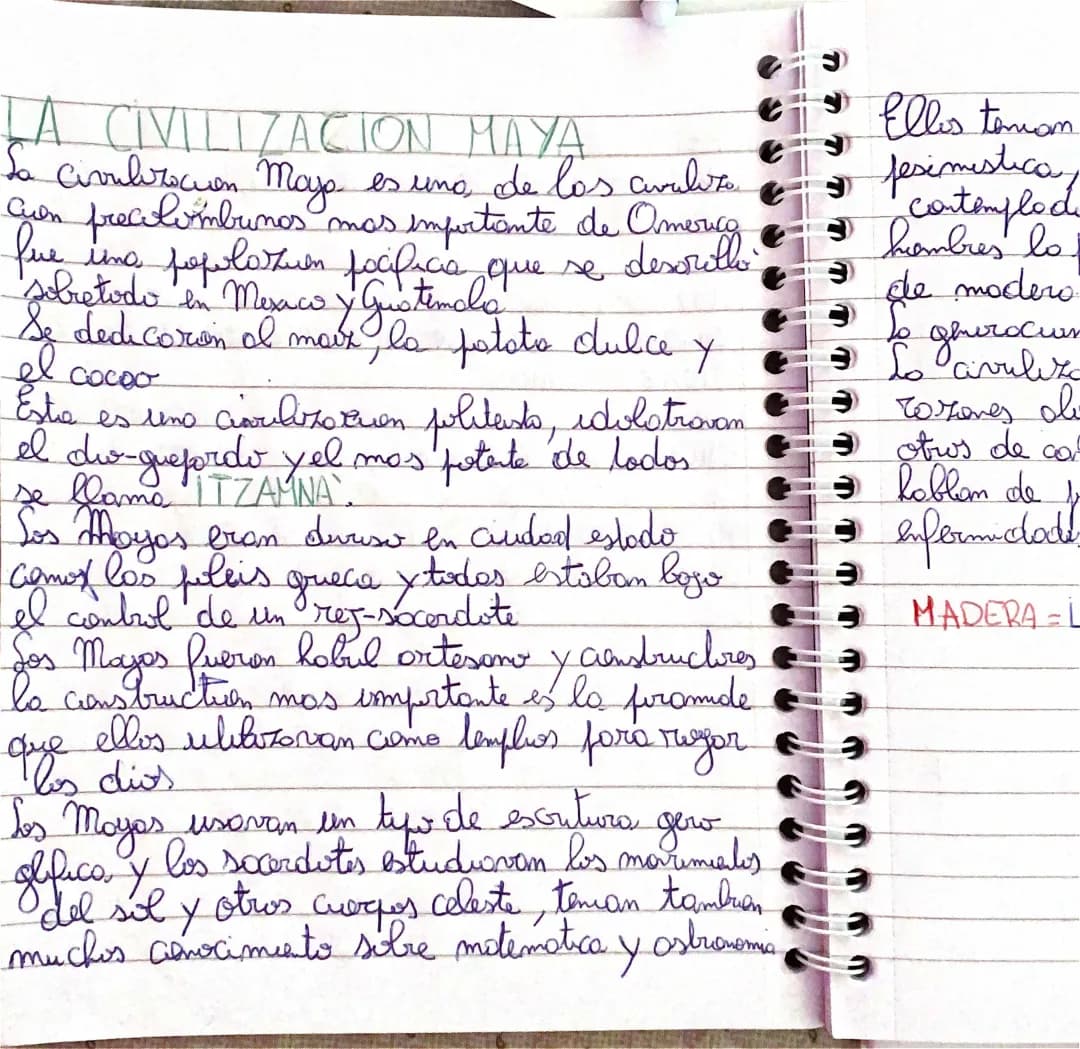 LA CIVILIZACION MAYA
La civilizacion Maya es una de las civiliza
cion precolombinas mas importante de America
fue una popolazion pacifica que se desorollò
sobretodo en Mexaco y Guatemala
Se dedicaron al maiz, la patata dulce y
el cacao
Esta es una civilizazion politesta, idolatravan
el dio-guepardo y el mas potente de todos
se llama ITZAMNA`.
Los Mayas eran diviso en ciudad estado
como las poleis greca y todas estaban bajo
el control de un rej-sacerdote
Los Mayas fueron habil artesano y constructores
la construction mas importante es la piramide
que ellos utilizavan como templios para
los dios
Los Mayas usavan un typo de escritura gero
glifica y los sacerdotes estudiavam los movimientos
del sol y otros cuerpos celeste, tenian tambien
muchos conocimiento sobre matematica y astronomia
Ellos tenian
pesimistica,
contemplad
hombres lo
de madera
La generacion
La civiliza
razones
otros de
hablan de
enfermidade
MADERA =